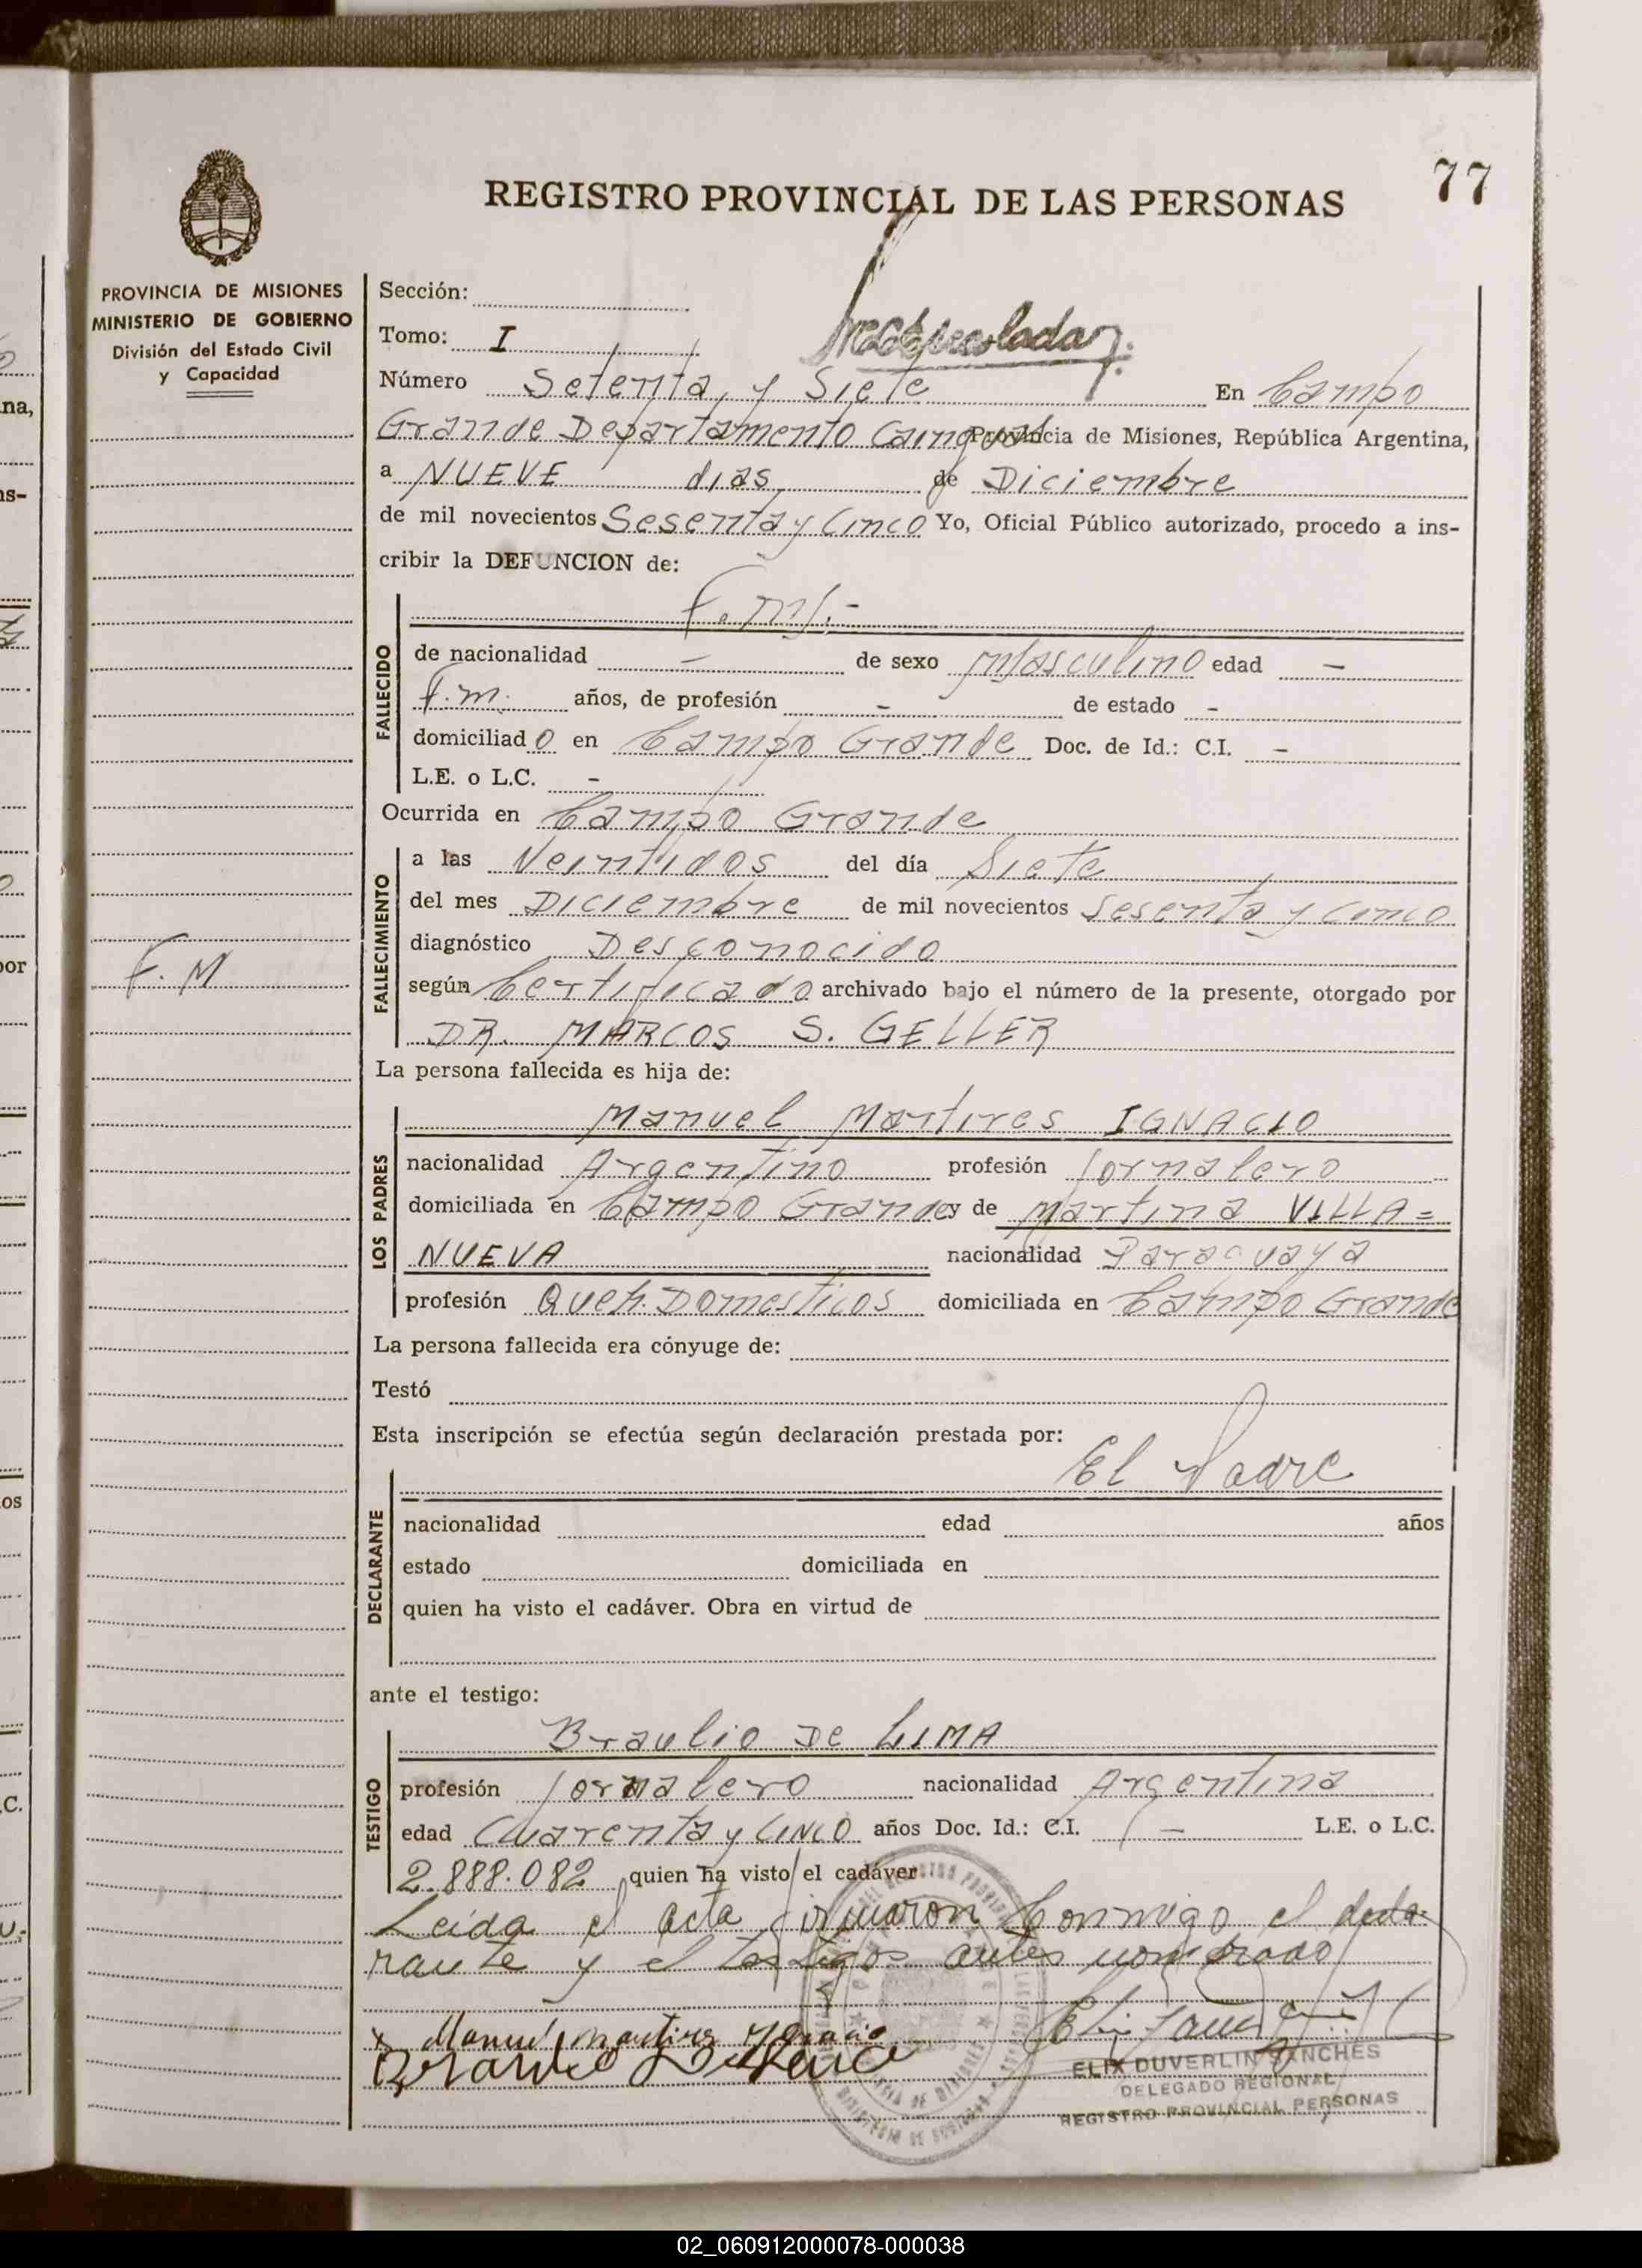 77
REGISTRO PROVINCIAL DE LAS PERSONAS
PROVINCIA DE MISIONES
MINISTERIO DE GOBIERNO
División del Estado Civil
y Capacidad
F. M
Sección:
Tomo: I
Número Setenta y Siete En Campo
Grande Departamento Cainguas Provincia de Misiones, República Argentina,
a NUEVE dias de Diciembre
de mil novecientos Sesenta y Cinco Yo, Oficial Público autorizado, procedo a ins-
cribir la DEFUNCION de:
F. M.-
FALLECIDO
de nacionalidad - de sexo Masculino edad -
F.m. años, de profesión - de estado -
domiciliado en Campo Grande Doc. de Id.: C.I. -
L.E. o L.C. -
Ocurrida en Campo Grande
FALLECIMIENTO
a las Veintidos del día Siete
del mes Diciembre de mil novecientos Sesenta y Cinco
diagnóstico Desconocido
según Certificado archivado bajo el número de la presente, otorgado por
DR. MARCOS S. GELLER
La persona fallecida es hija de:
LOS PADRES
Manuel Martires IGNACIO
nacionalidad Argentino profesión Jornalero
domiciliada en Campo Grande y de Martina VILLA=
NUEVA nacionalidad Paraguaya
profesión Queh. Domesticos domiciliada en Campo Grande
La persona fallecida era cónyuge de:
Testó
Esta inscripción se efectúa según declaración prestada por:
El Padre
DECLARANTE
nacionalidad edad años
estado domiciliada en
quien ha visto el cadáver. Obra en virtud de
ante el testigo:
TESTIGO
Braulio De LIMA
profesión Jornalero nacionalidad Argentina
edad Cuarenta y CINCO años Doc. Id.: C.I. - L.E. o L.C.
2.888.082 quien ha visto el cadáver
Leida el acta firmaron Conmigo el decla-
rante y el testigos antes nombrado
Manuel martires Ygnacio
ELIX DUVERLIN SANCHES
DELEGADO REGIONAL
REGISTRO PROVINCIAL PERSONAS
02_060912000078-000038